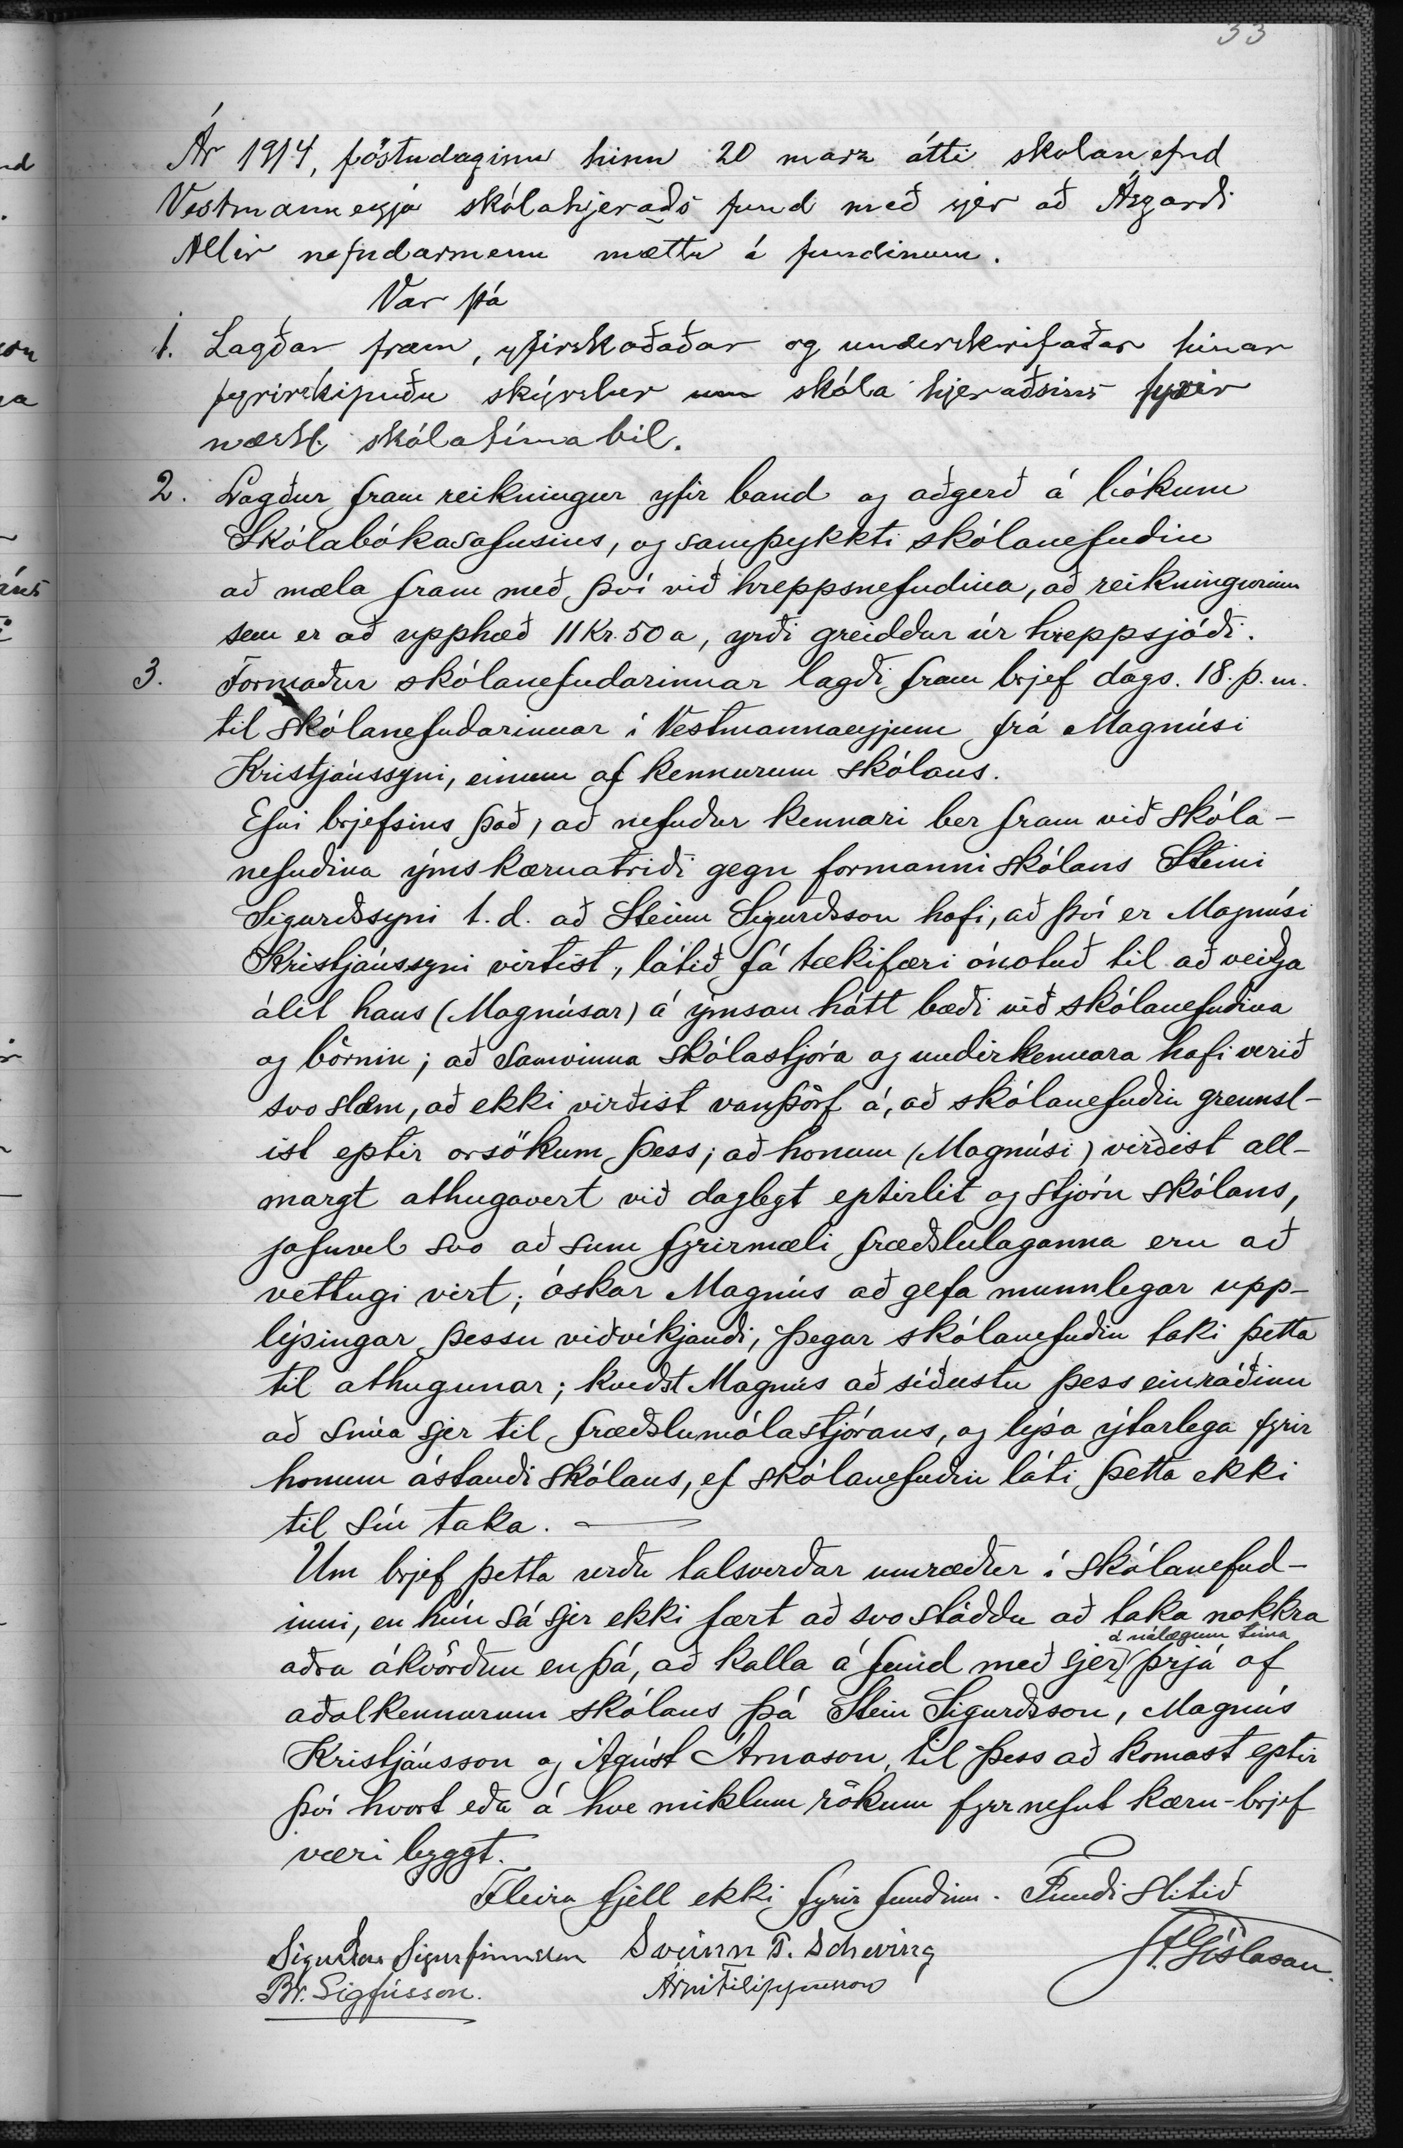 33
Ár 1914, föstudaginn hinn 20 marz átti skolanefnd
Vestmanneyja skólahjeraðs fund með sjer að Ásgarði
Allir nefndarmenn mættu á fundinum.
Var þá
1. Lagðar fram, yfirskoðaðar og underskrifaðar hinar
fyrirskipuðu skýrslur um skóla hjeraðsins fyrir
næstl. skólatímabil.
2. Lagður fram reikningur yfir band og aðgerð á bókum
Skólabókasafnsins, og samþykkti skólanefndin
að mæla fram með því við hreppsnefndina, að reikningurinn
sem er að upphæð 11 Kr. 50 a, yrði greiddur úr hreppsjóði.
3. Formaður skólanefndarinnar lagði fram brjef dags. 18. þ. m.
til skólanefndarinnar í Vestmannaeyjum frá Magnúsi
Kristjánssyni, einum af kennurum skólans.
Efni brjefsins það, að nefndur kennari ber fram við skóla-
nefndina ýms kæruatriði gegn formanni skólans Steini
Sigurðssyni t. d. að Steinn Sigurðsson hafi, að því er Magnúsi
Kristjánssyni virtist, látið fá tækifæri ónotuð til að veikja
álit hans (Magnúsar) á ýmsan hátt bæði við skólanefndina
og börnin; að samvinna skólastjóra og undirkennara hafi verið
svo slæm, að ekki virðist vanþörf á, að skólanefndin grennsl-
ist eptir orsökum þess; að honum (Magnúsi) virðist all-
margt athugavert við daglegt eptirlit og stjórn skólans,
jafnvel svo að sum fyrirmæli fræðslulaganna eru að
vettugi virt; óskar Magnús að gefa munnlegar upp-
lýsingar þessu viðvíkjandi, þegar skólanefndin taki þetta
til athugunar; kveðst Magnús að síðustu þess einráðinn
að snúa sjer til fræðslumálastjórans, og lýsa ýtarlega fyrir
honum ástandi skólans, ef skólanefndin láti þetta ekki
til sín taka. —
Um brjef þetta urðu talsverðar umræður í skólanefnd-
inni, en hún sá sjer ekki fært að svo stöddu að taka nokkra
á nálægum tíma
aðra ákvörðun en þá, að kalla á fund með sjer þrjá af
aðalkennurum skólans þá Stein Sigurðsson, Magnús
Kristjánsson og Ágúst Árnason, til þess að komast eptir
því hvort eða á hve miklum rökum fyrnefnt kæru-brjef
væri byggt.
Fleira fjell ekki fyrir fundinn. Fundi slitið
Sigurður Sigurfinnsson Sveinn P. Scheving St. Gíslason.
Br. Sigfússon. Árni Filippusson